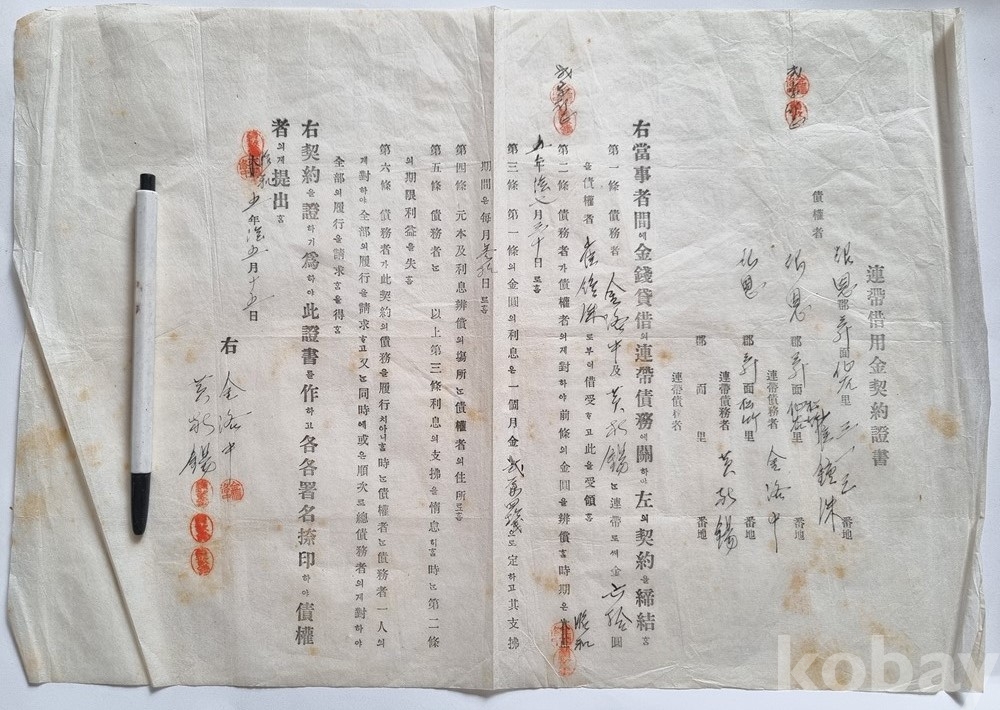 連帶借用金契約證書
郡 面 里 番地
債權者 崔鐘洙
郡 面 里 番地
連帶債務者 金洛中
郡 面 里 番地
連帶債務者 黃 錫
郡 面 里 番地
連帶債務者
右當事者間에金錢貸借의連帶債務에關하야左의契約을締結홈
第一條 債務者 金洛中及黃 錫는連帶로써金 拾圓
을債權者 崔鐘洙로부터借受하고此을受領홈
第二條 債務者가債權者의게對하야前條의金圓을辨償홀時期은昭和
五年 月三十日로홈
第三條 第一條의金圓의利息은一個月金 로定하고其支拂
期間은每月 日로홈
第四條 元本及利息辨償의場所는債權者의住所로홈
第五條 債務者는 以上第三條利息의支拂을惰怠히홀時는第二條
의期限利益을失홈
第六條 債務者가此契約의債務을履行치아니홀時는債權者는債務者一人의
게對하야全部의履行을請求하고又는同時에或은順次로總債務者의게對하야
全部의履行을請求홈을得홈
右契約을證하기爲하야此證書을作하고各各署名捺印하야債權
者의게提出홈
昭和五年 月十五日
右 金洛中
黃 錫
kobay